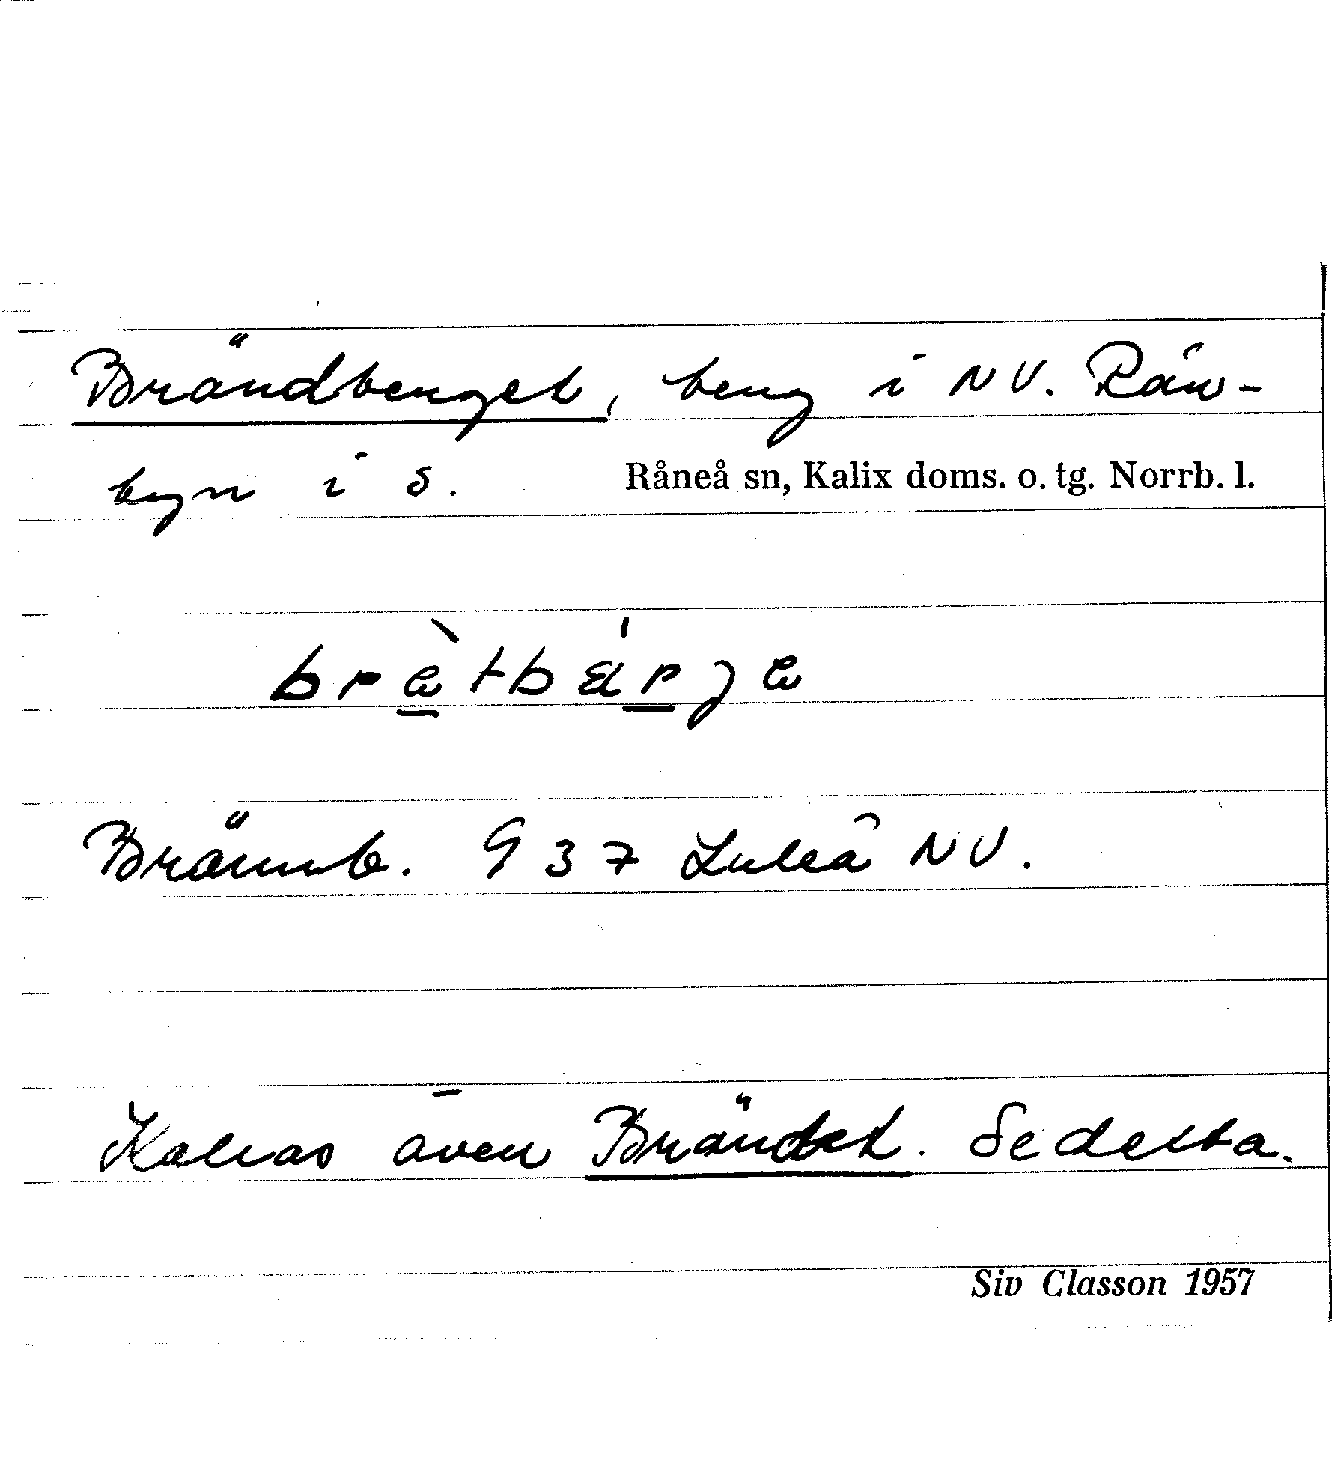 Brändberget, berg i NV. Rån-
byn i S. Råneå sn, Kalix doms. o. tg. Norrb. l.
Brännb. 937 Luleå NV.
Kallas även Brändet. Se detta.
Siv Classon 1957